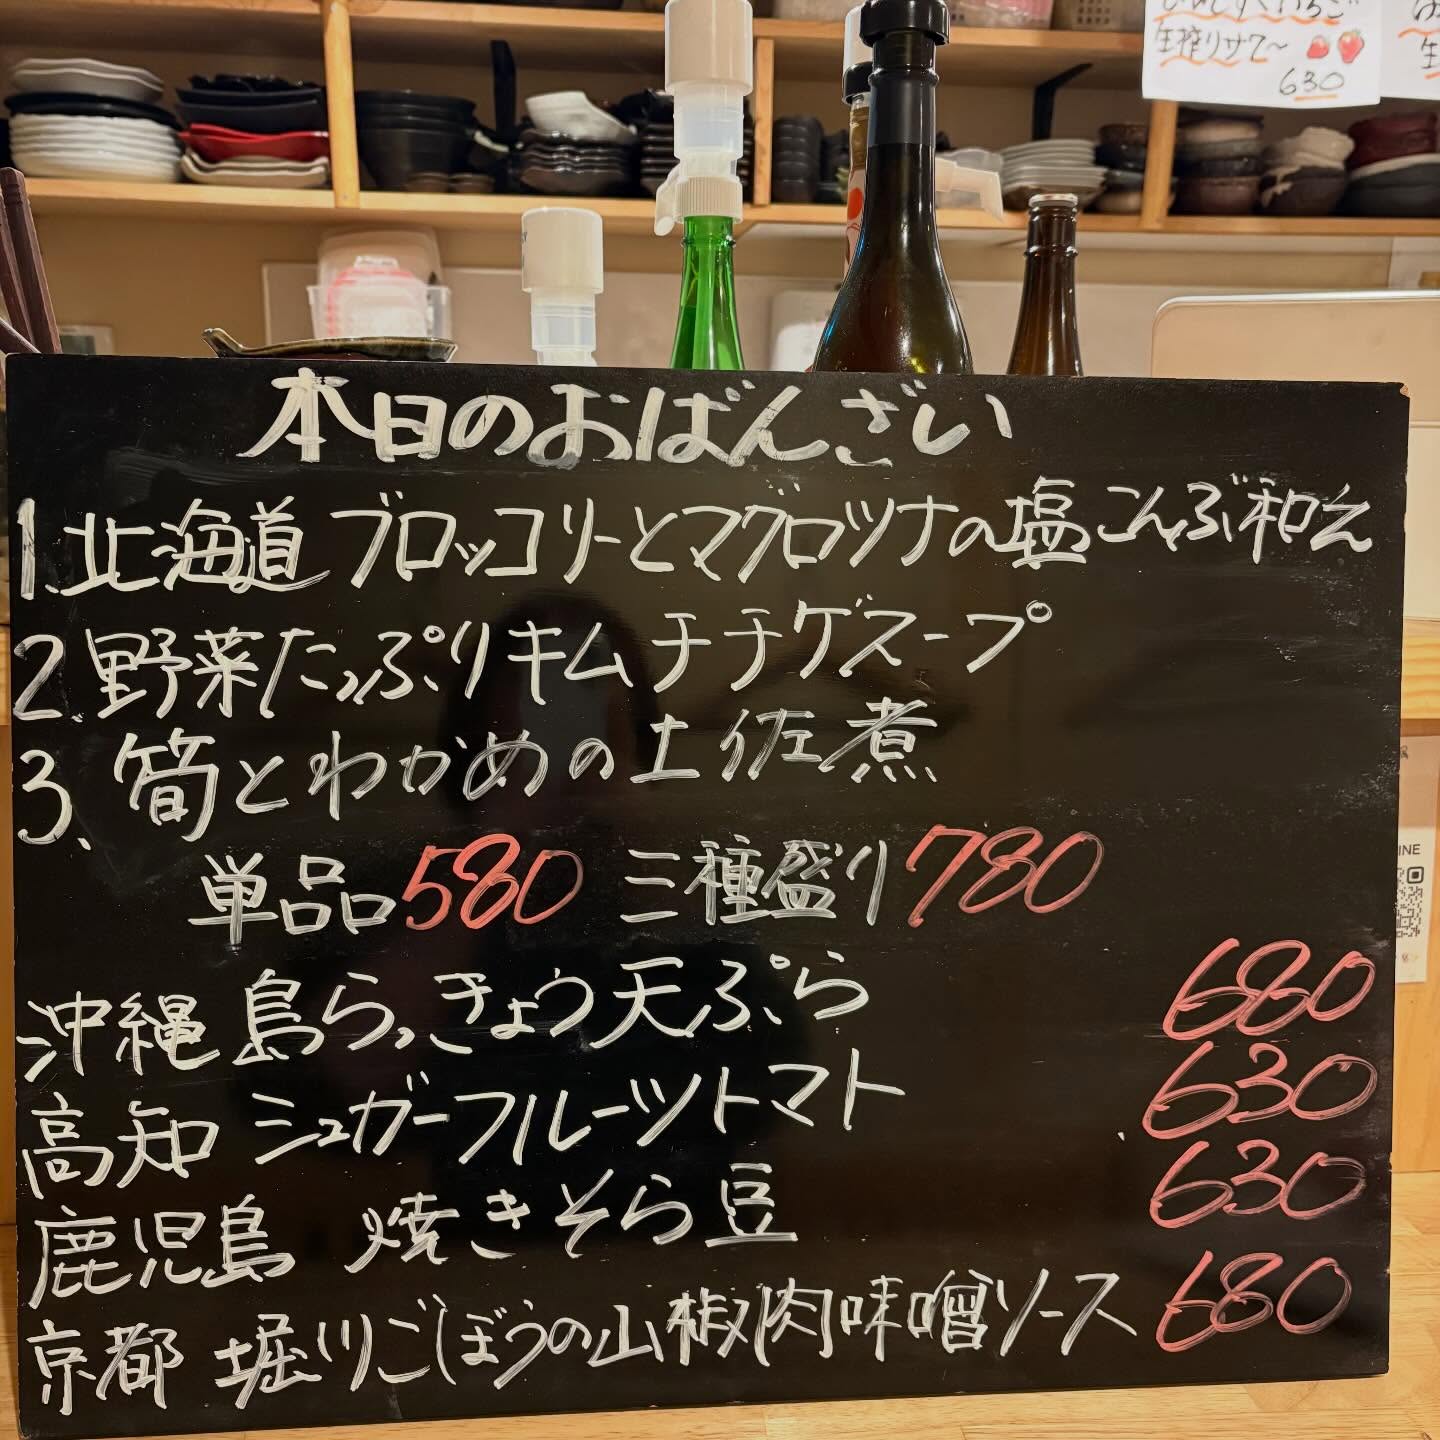 生搾りサワ〜
630
本日のおばんざい
1.北海道 ブロッコリーとマグロツナの塩こんぶ和え
2.野菜たっぷりキムチチゲスープ
3.筍とわかめの土佐煮
単品580 三種盛り780
沖縄 島らっきょう天ぷら 680
高知 シュガーフルーツトマト 630
鹿児島 焼きそら豆 630
京都 堀川ごぼうの山椒肉味噌ソース 680
INE